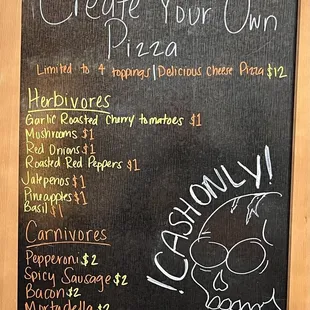 Create Your Own
Pizza
Limited to 4 toppings | Delicious Cheese Pizza $12
Herbivores
Garlic Roasted Cherry tomatoes $1
Mushrooms $1
Red Onions $1
Roasted Red Peppers $1
Jalepenos $1
Pineapples $1
Basil $1
Carnivores
Pepperoni $2
Spicy Sausage $2
Bacon $2
Mortadella $2
!CASH ONLY!